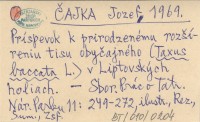 ČAJKA Jozef, 1969.
Príspevok k prirodzenému rozší-
reniu tisu obyčajného (Taxus
baccata L.) v Liptovských
holiach. — Sbor. Prác o Tatr.
Nár. Parku 11: 249-272, ilustr., Rez,
Sum., Zsf.
BT/010/0204